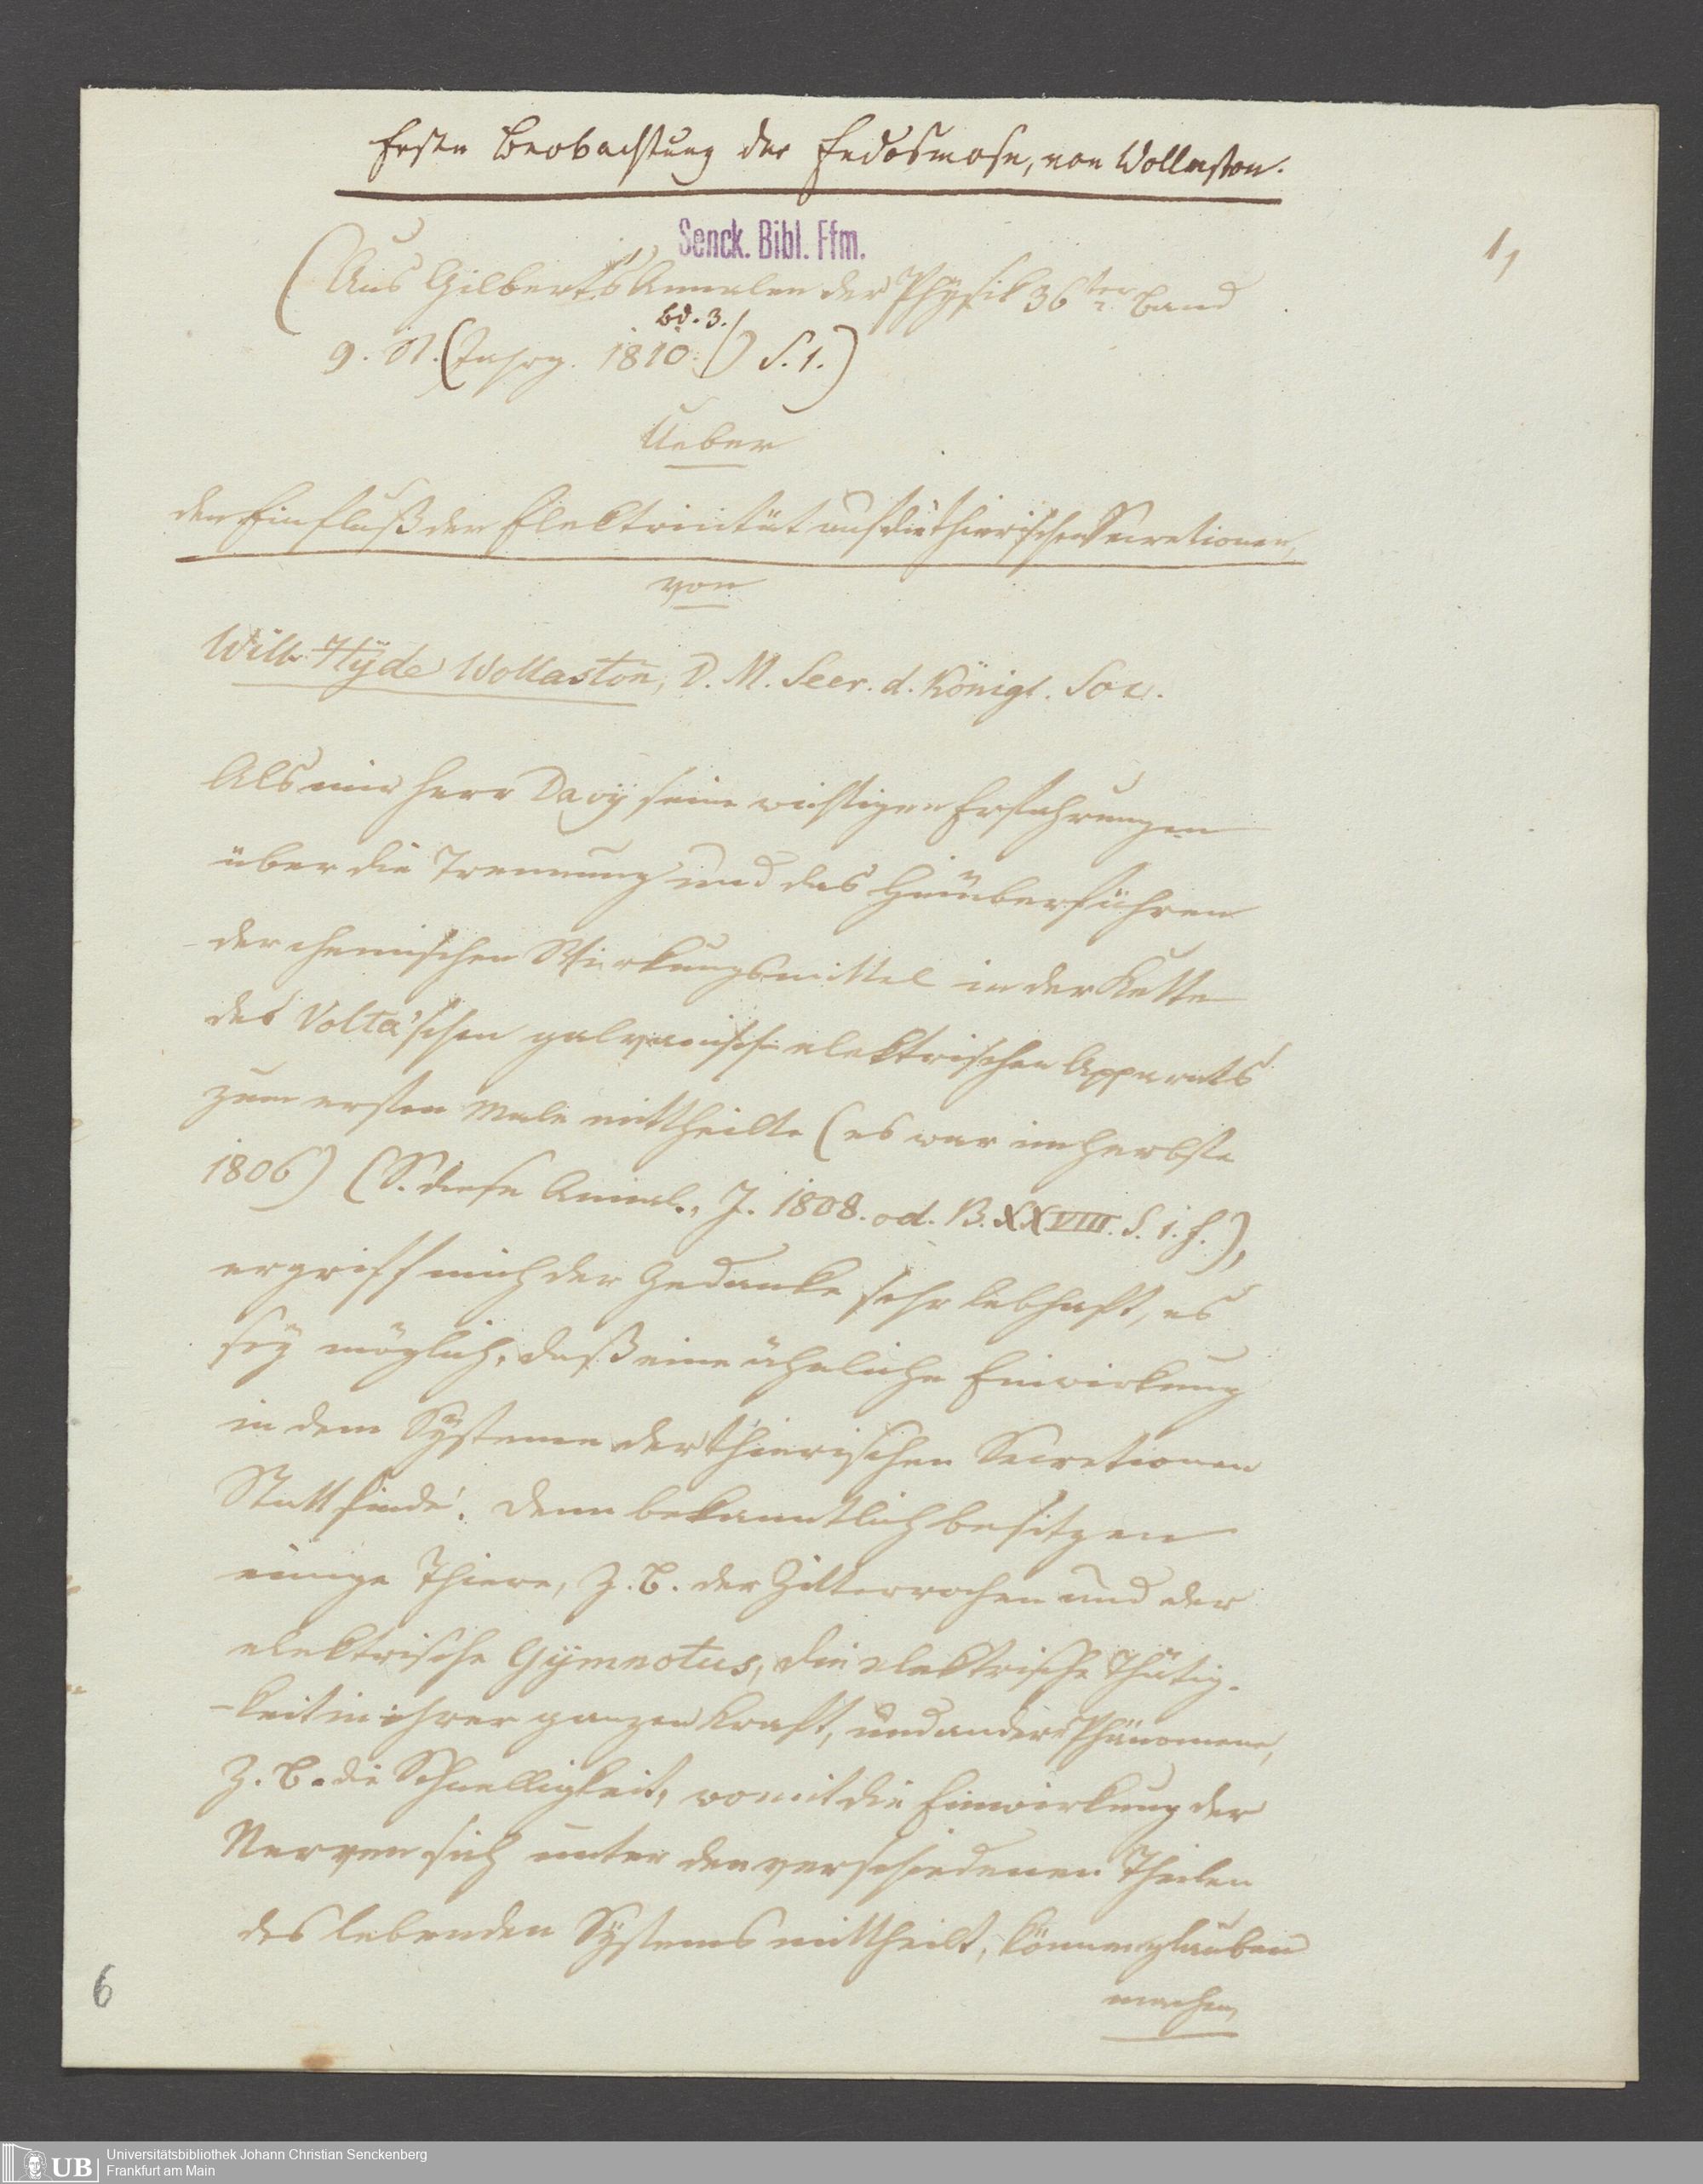 Erste Beobachtung der Endosmose, von Wollaston.
Senck. Bibl. Ffm.
1,
(Aus Gilbert's Annalen der Physik 36ter Band
bd. 3.
9. St. (Jahrg. 1810.) S. 1.)
Ueber
den Einfluß der Elektricität auf die thierischen Secretionen,
von
Will. Hyde Wollaston, D. M. Secr. d. Königl. Soc.
Als mir Herr Davy seine wichtigen Erfahrungen
über die Trennung und das Hinüberführen
der chemischen Wirkungsmittel in der Kette
des Volta'schen galvanisch-elektrischen Apparats
zum ersten Male mittheilte (es war im Herbste
1806) (S. diese Annal., J. 1808. od. B. XXVIII. S. 1. f.),
ergriff mich der Gedanke sehr lebhaft, es
sey möglich, daß eine ähnliche Einwirkung
in dem Systeme der thierischen Secretionen
Statt finde. Denn bekanntlich besitzen
einige Thiere, z. B. der Zitterrochen und der
elektrische Gymnotus, die elektrische Thätig-
-keit in ihrer ganzen Kraft, und andere Phänomene,
z. B. die Schnelligkeit, womit die Einwirkung der
Nerven sich unter den verschiedenen Theilen
des lebenden Systems mittheilt, können glauben
machen,
6
UB
Universitätsbibliothek Johann Christian Senckenberg
Frankfurt am Main